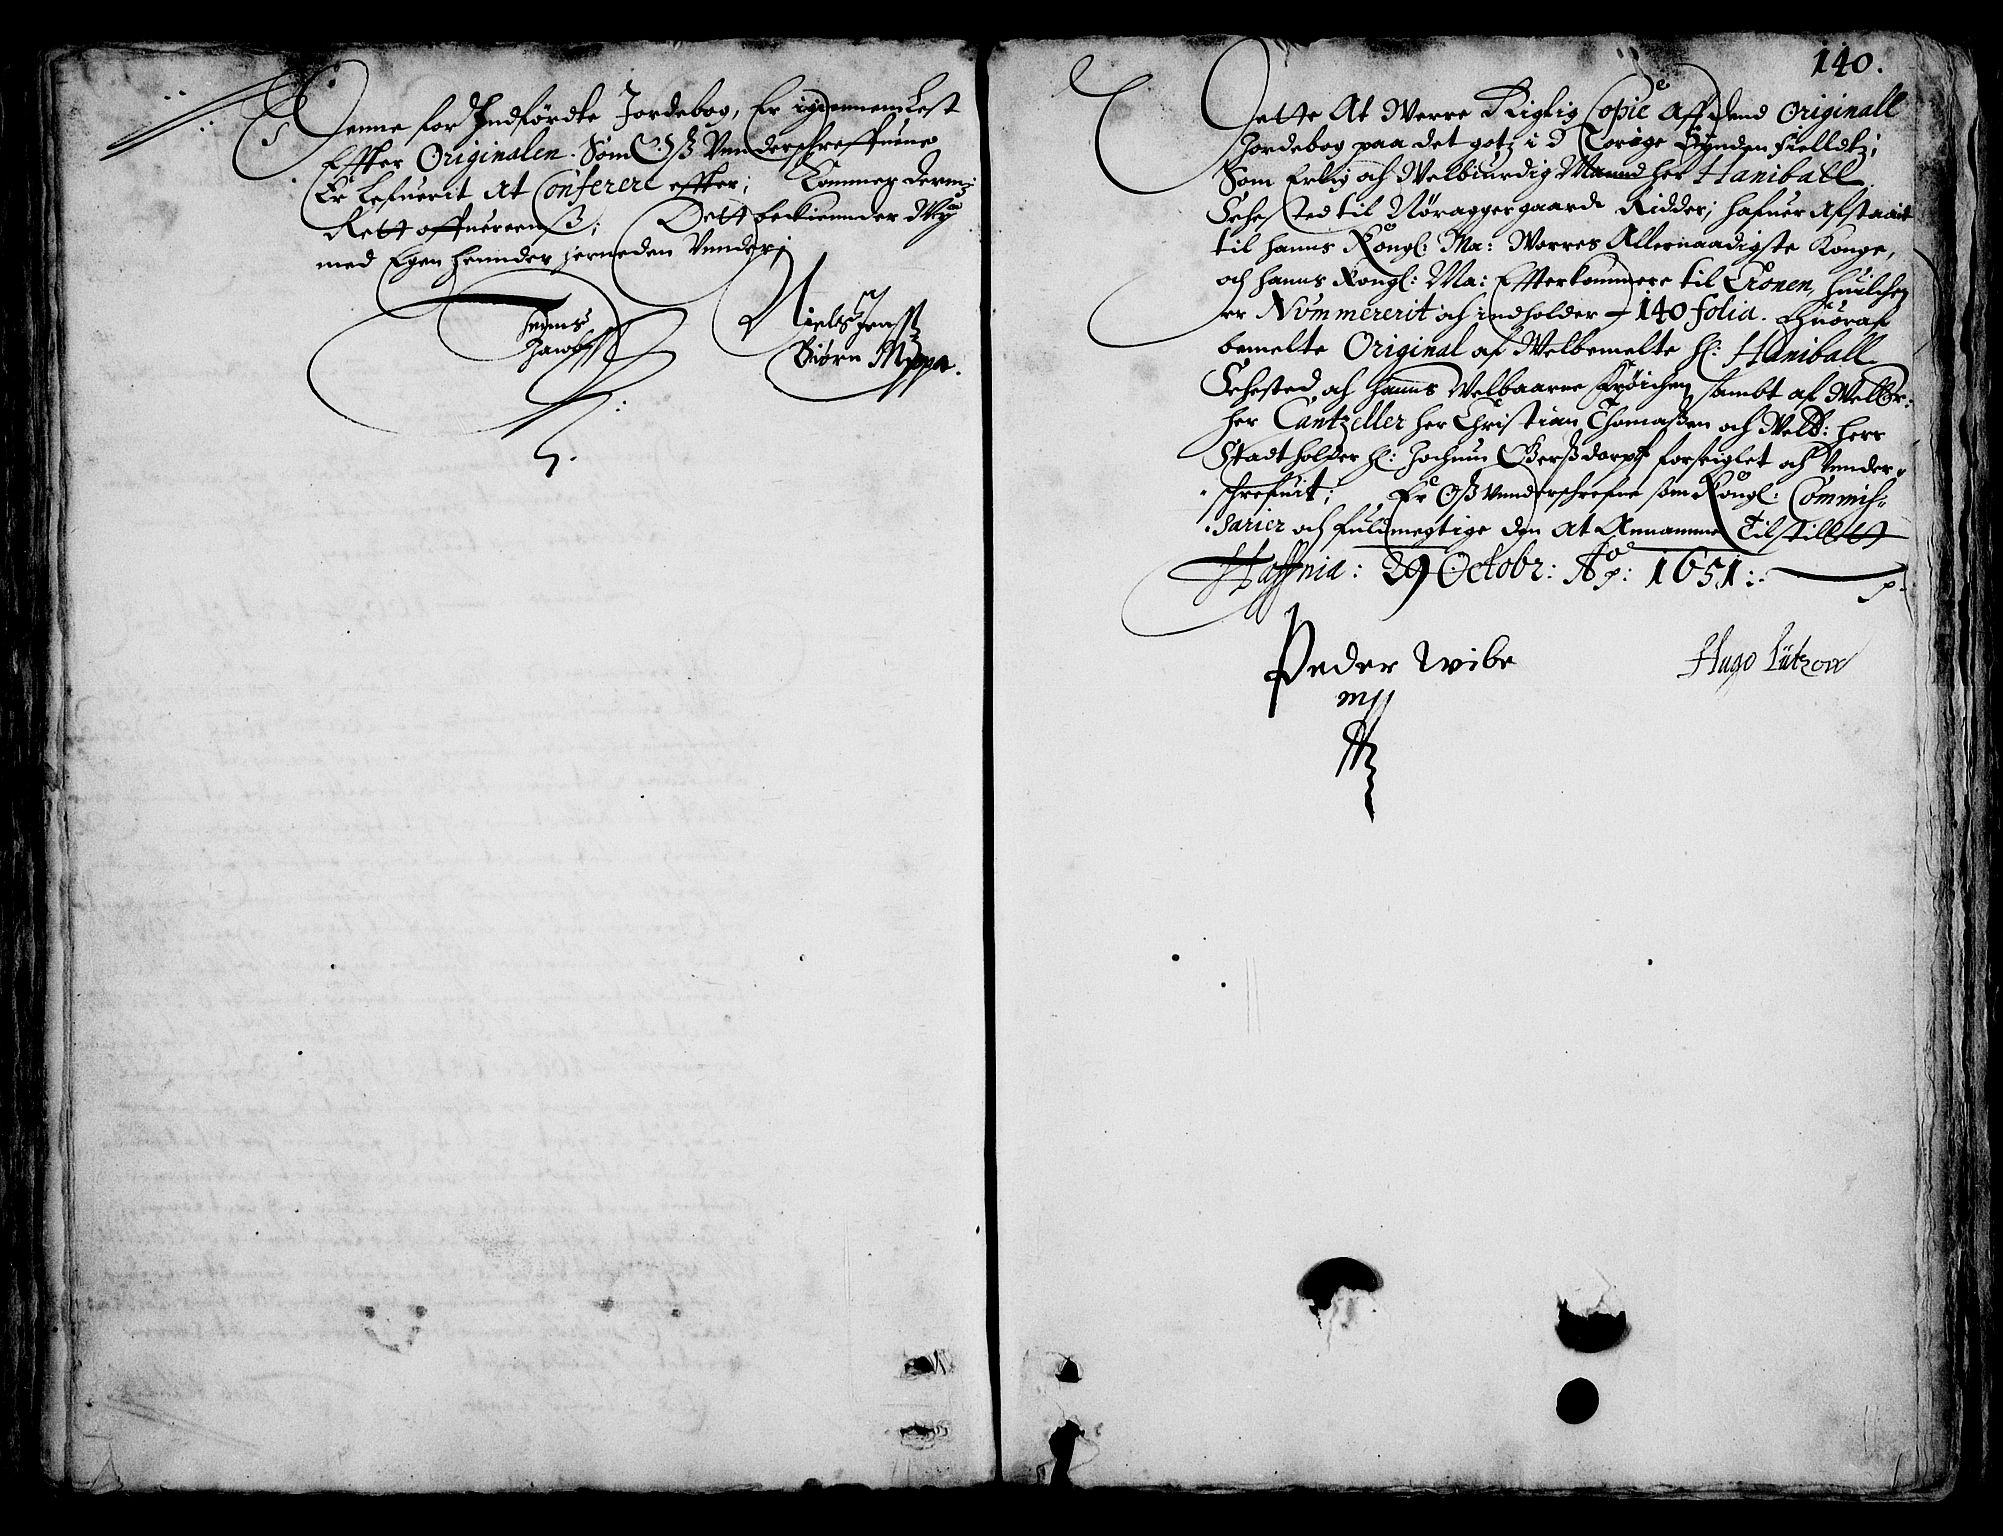 Denne for Indførdte Jordebog, Er igiennem Lest
Effter Originalen. Som Oß Vnderschreffuene
Er Lefuerit At Conferere effter; Kommer derm:
Rett offuereenß; Dett bekiender Wy
med Egen hennder herneden Vnder;
Jenns
Niels Jenß
Biørn
140.
Dette At Werre Rigtig Copie Aff dend Originall
Jordebog paa det gotz i Norige Synden fieldtz,
Som Erlig och Welbiurdig Mannd her Haniball
Sehested til Nøraggergaard Ridder; hafuer Afstaait
til hanns Kongl: Ma: Worres Allernaadigste Konge,
och hanns Kongl: Ma: Effterkommere til Cronen, huilchen
er Nummererit och indholder 140 folia. Huoraf
bemelte Original af Welbemelte H: Haniball
Sehested och hanns Welbaarne frøichen sambt af Welbr:
her Cantzeller her Christian Thomaßen och Welb: herr
Stadtholder H: Jochum Gerßdorpf forseiglet och Vnder-
schrefuit; Er Oß Vnderschrefne som Kongl: Commis-
sarier och fuldmegtige den At Annamme Tilstillett
Haffnia: 29 Octobr: Ao: 1651
Peder Wibe
Hugo Lützow
mp